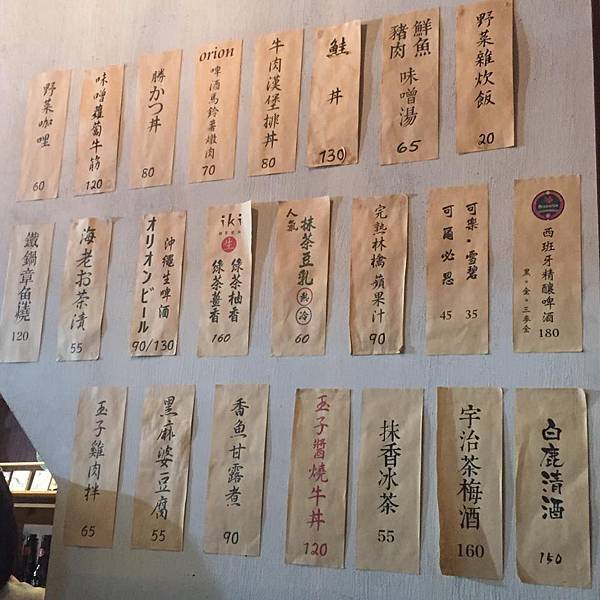 野菜雜炊飯
20
鮮魚
豬肉 味噌湯
65
鮭丼
130
牛肉漢堡排丼
80
orion
啤酒馬鈴薯燉肉
70
勝かつ丼
80
味噌蘿蔔牛筋
120
野菜咖哩
60
西班牙精釀啤酒
黑。金。三麥金
180
可樂・雪碧
35
可爾必思
45
完熟林檎蘋果汁
90
人氣
抹茶豆乳
熱 冷
60
iki
生
綠茶柚香
綠茶薑香
160
沖繩生啤酒
オリオンビール
90/130
海老お茶漬
55
鐵鍋章魚燒
120
白鹿清酒
150
宇治茶梅酒
160
抹香冰茶
55
玉子醬燒牛丼
120
香魚甘露煮
90
黑麻婆豆腐
55
玉子雞肉拌
65